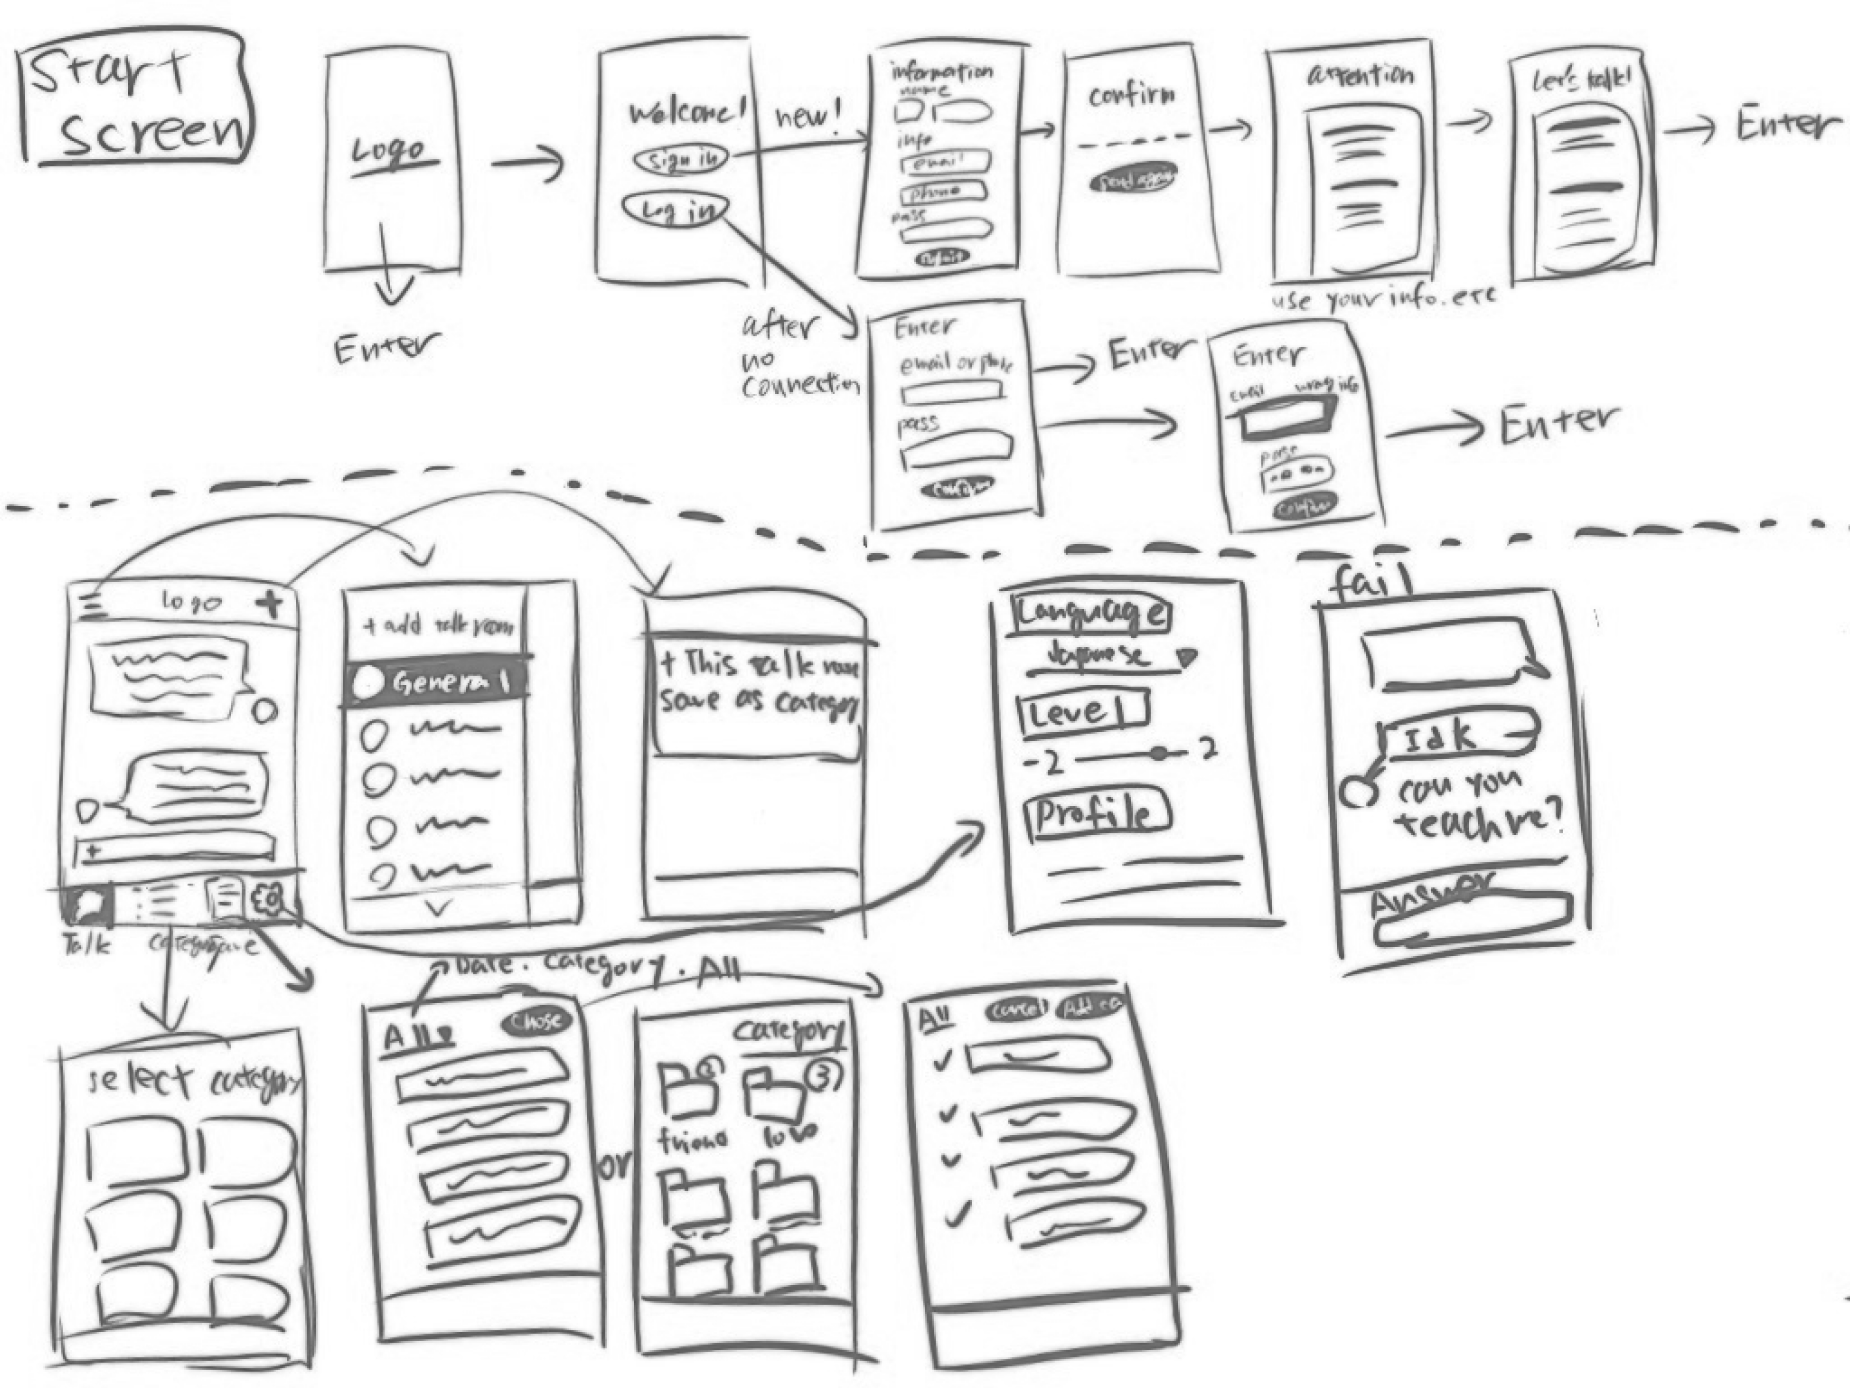 Start
screen
Logo
Enter
Welcome!
sign in
Log in
new!
information
name
info
email
phone
pass
confirm
send again
attention
use your info. etc
Let's talk!
Enter
after
no
connection
Enter
email or phone
pass
confirm
Enter
Enter
email wrong info
pass
confirm
Enter
logo +
+
Talk
+ add talk room
General
+ This talk room
save as category
Language
Japanese
Level
-2 2
Profile
fail
Idk
can you
teach me?
Answer
select category
Date. category. All
All
chose
or
category
3
friend
love
All cancel